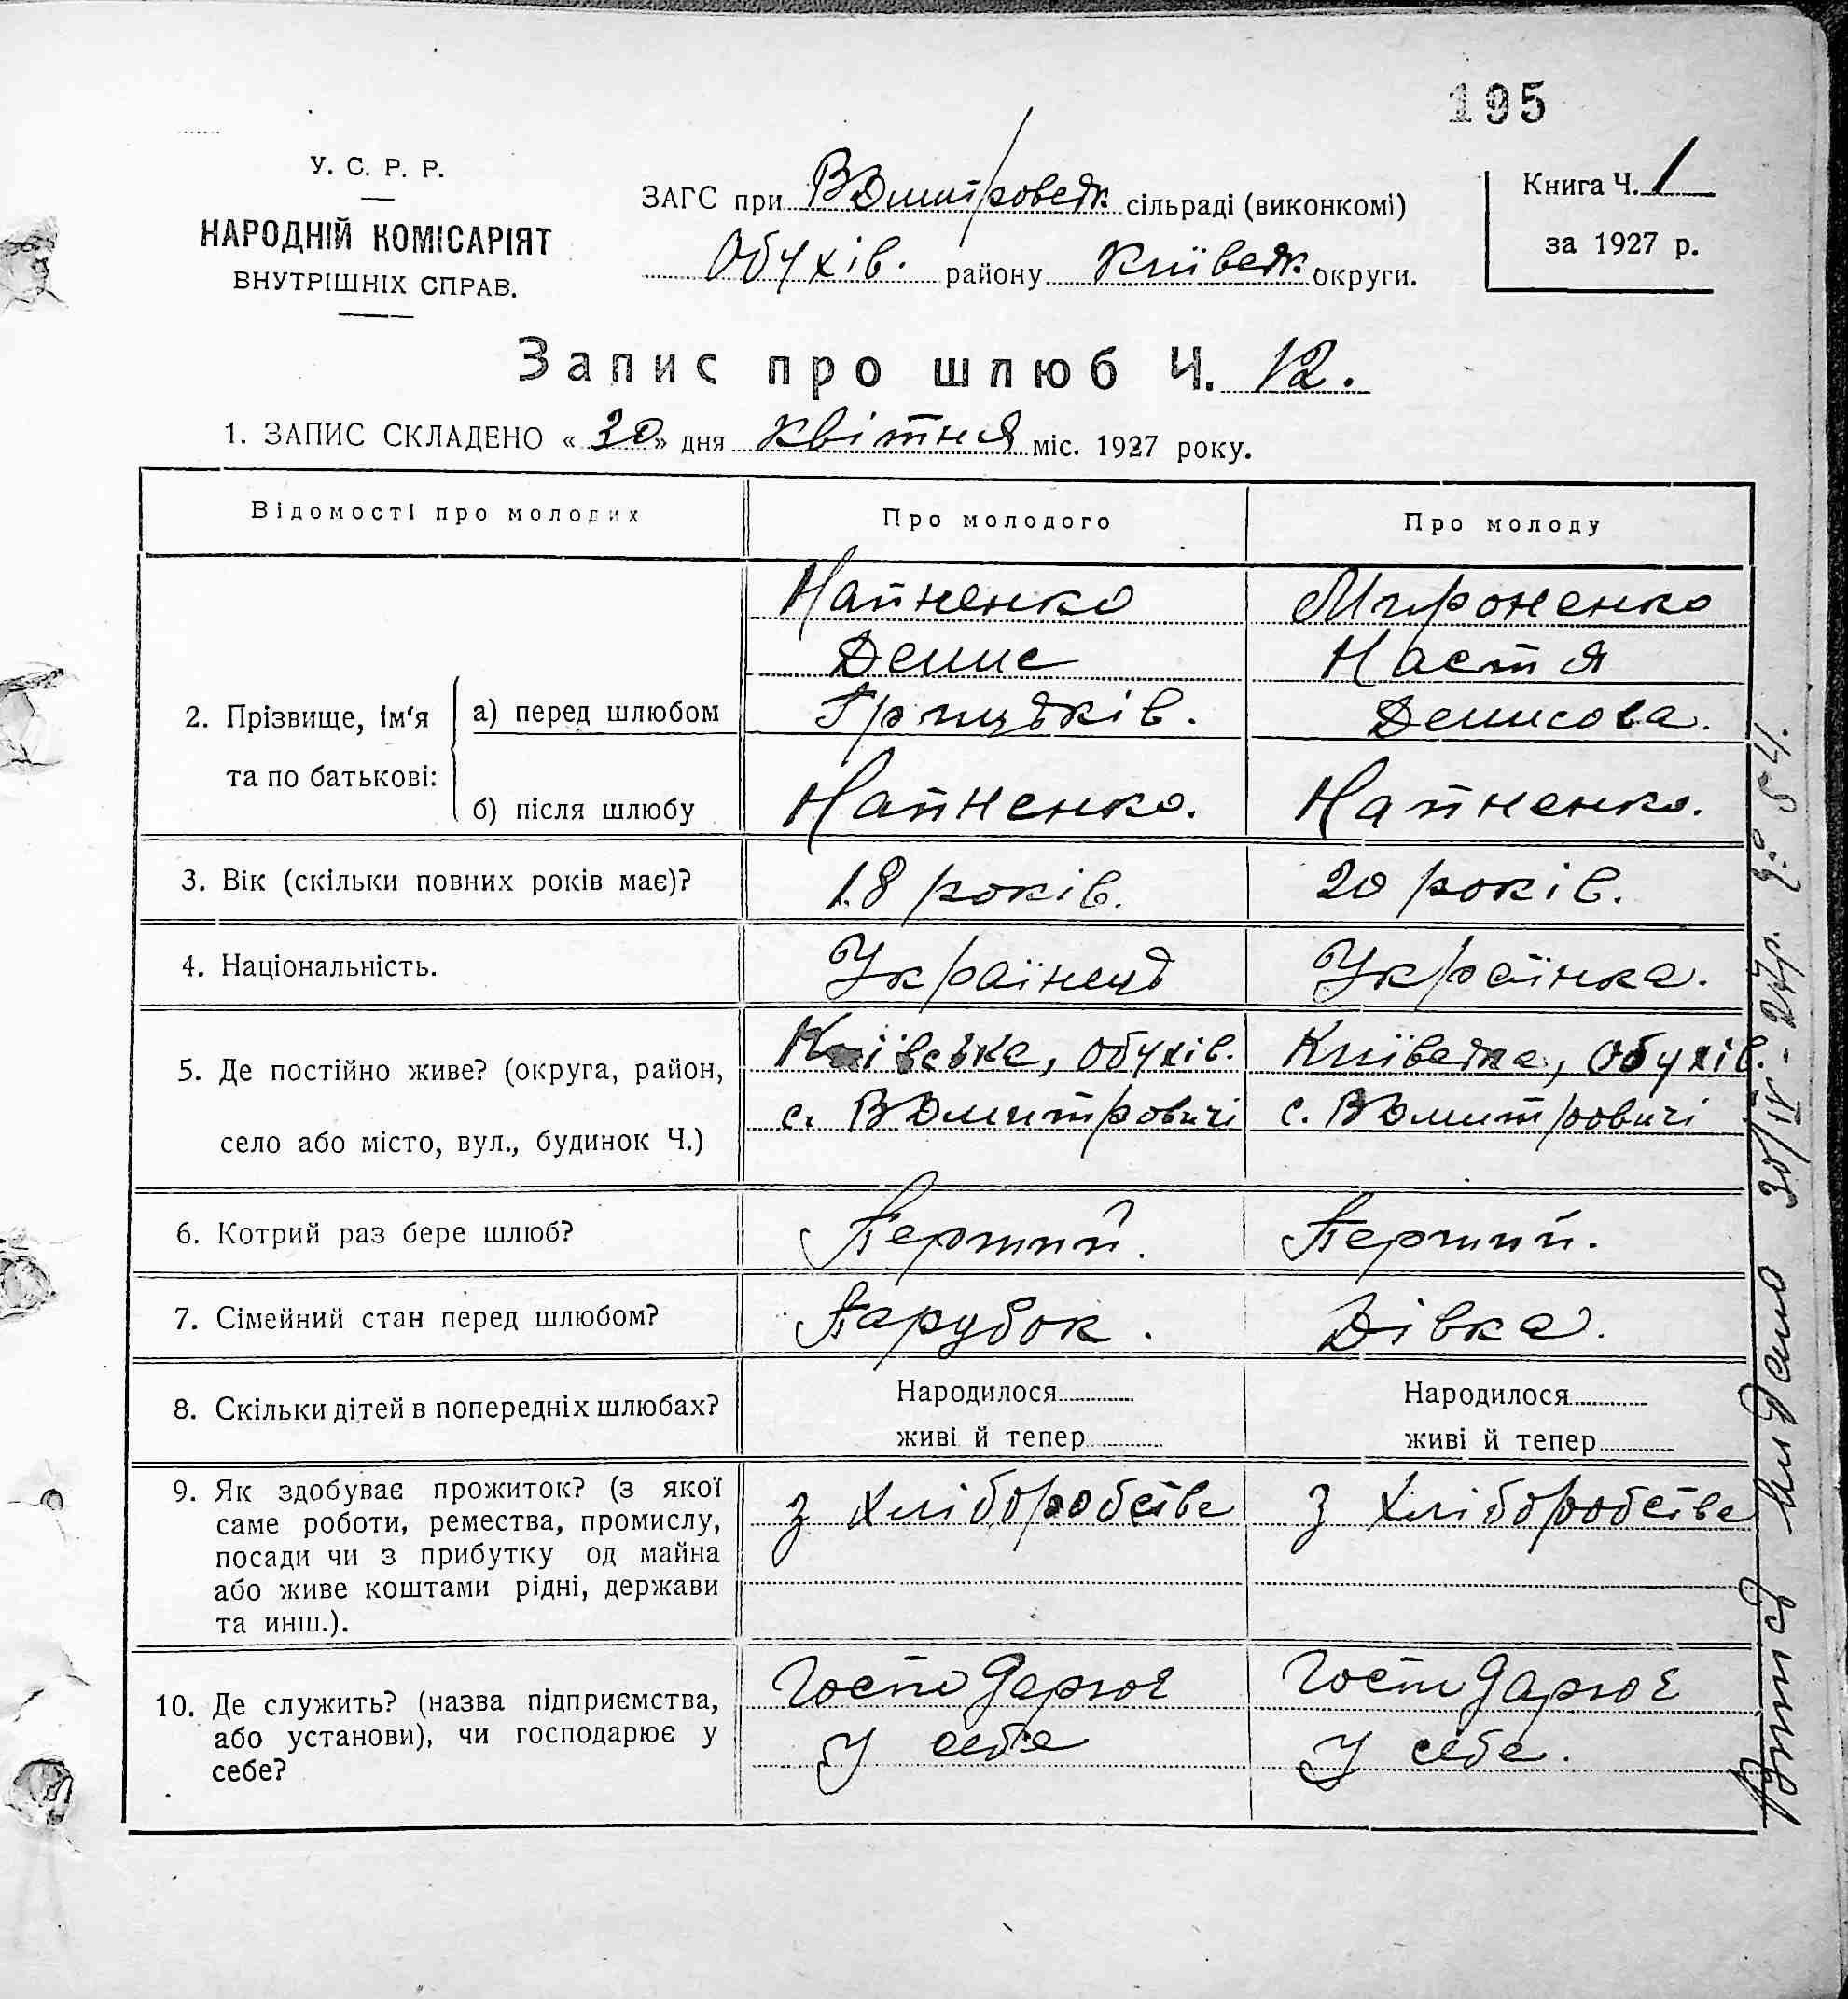 195
У. С. Р. Р.
НАРОДНІЙ КОМІСАРІЯТ
ВНУТРІШНІХ СПРАВ.
ЗАГС при ВДмитровськ сільраді (виконкомі)
Обухів. району Київськ. округи.
Книга Ч. 1
за 1927 р.
Запис про шлюб Ч. 12.
1. ЗАПИС СКЛАДЕНО « 30 » дня Квітня міс. 1927 року.
Відомості про молодих
Про молодого
Про молоду
2. Прізвище, ім'я та по батькові:
а) перед шлюбом
Найненко
Денис
Грицьків.
Мироненко
Настя
Денисова.
б) після шлюбу
Найненко.
Найненко.
3. Вік (скільки повних років має)?
18 років.
20 років.
4. Національність.
Українець
Українка.
5. Де постійно живе? (округа, район,
село або місто, вул., будинок Ч.)
Київська, Обухів.
с. ВДмитровичі
Київська, Обухів.
с. ВДмитровичі
6. Котрий раз бере шлюб?
Перший.
Перший.
7. Сімейний стан перед шлюбом?
Парубок.
Дівка.
8. Скільки дітей в попередніх шлюбах?
Народилося
живі й тепер
Народилося
живі й тепер
9. Як здобуває прожиток? (з якої
саме роботи, ремества, промислу,
посади чи з прибутку од майна
або живе коштами рідні, держави
та инш.).
З хліборобства
З хліборобства
10. Де служить? (назва підприємства,
або установи), чи господарює у
себе?
Господарює
У себе
Господарює
У себе.
Витяг видано 30/IV-27р. 54.